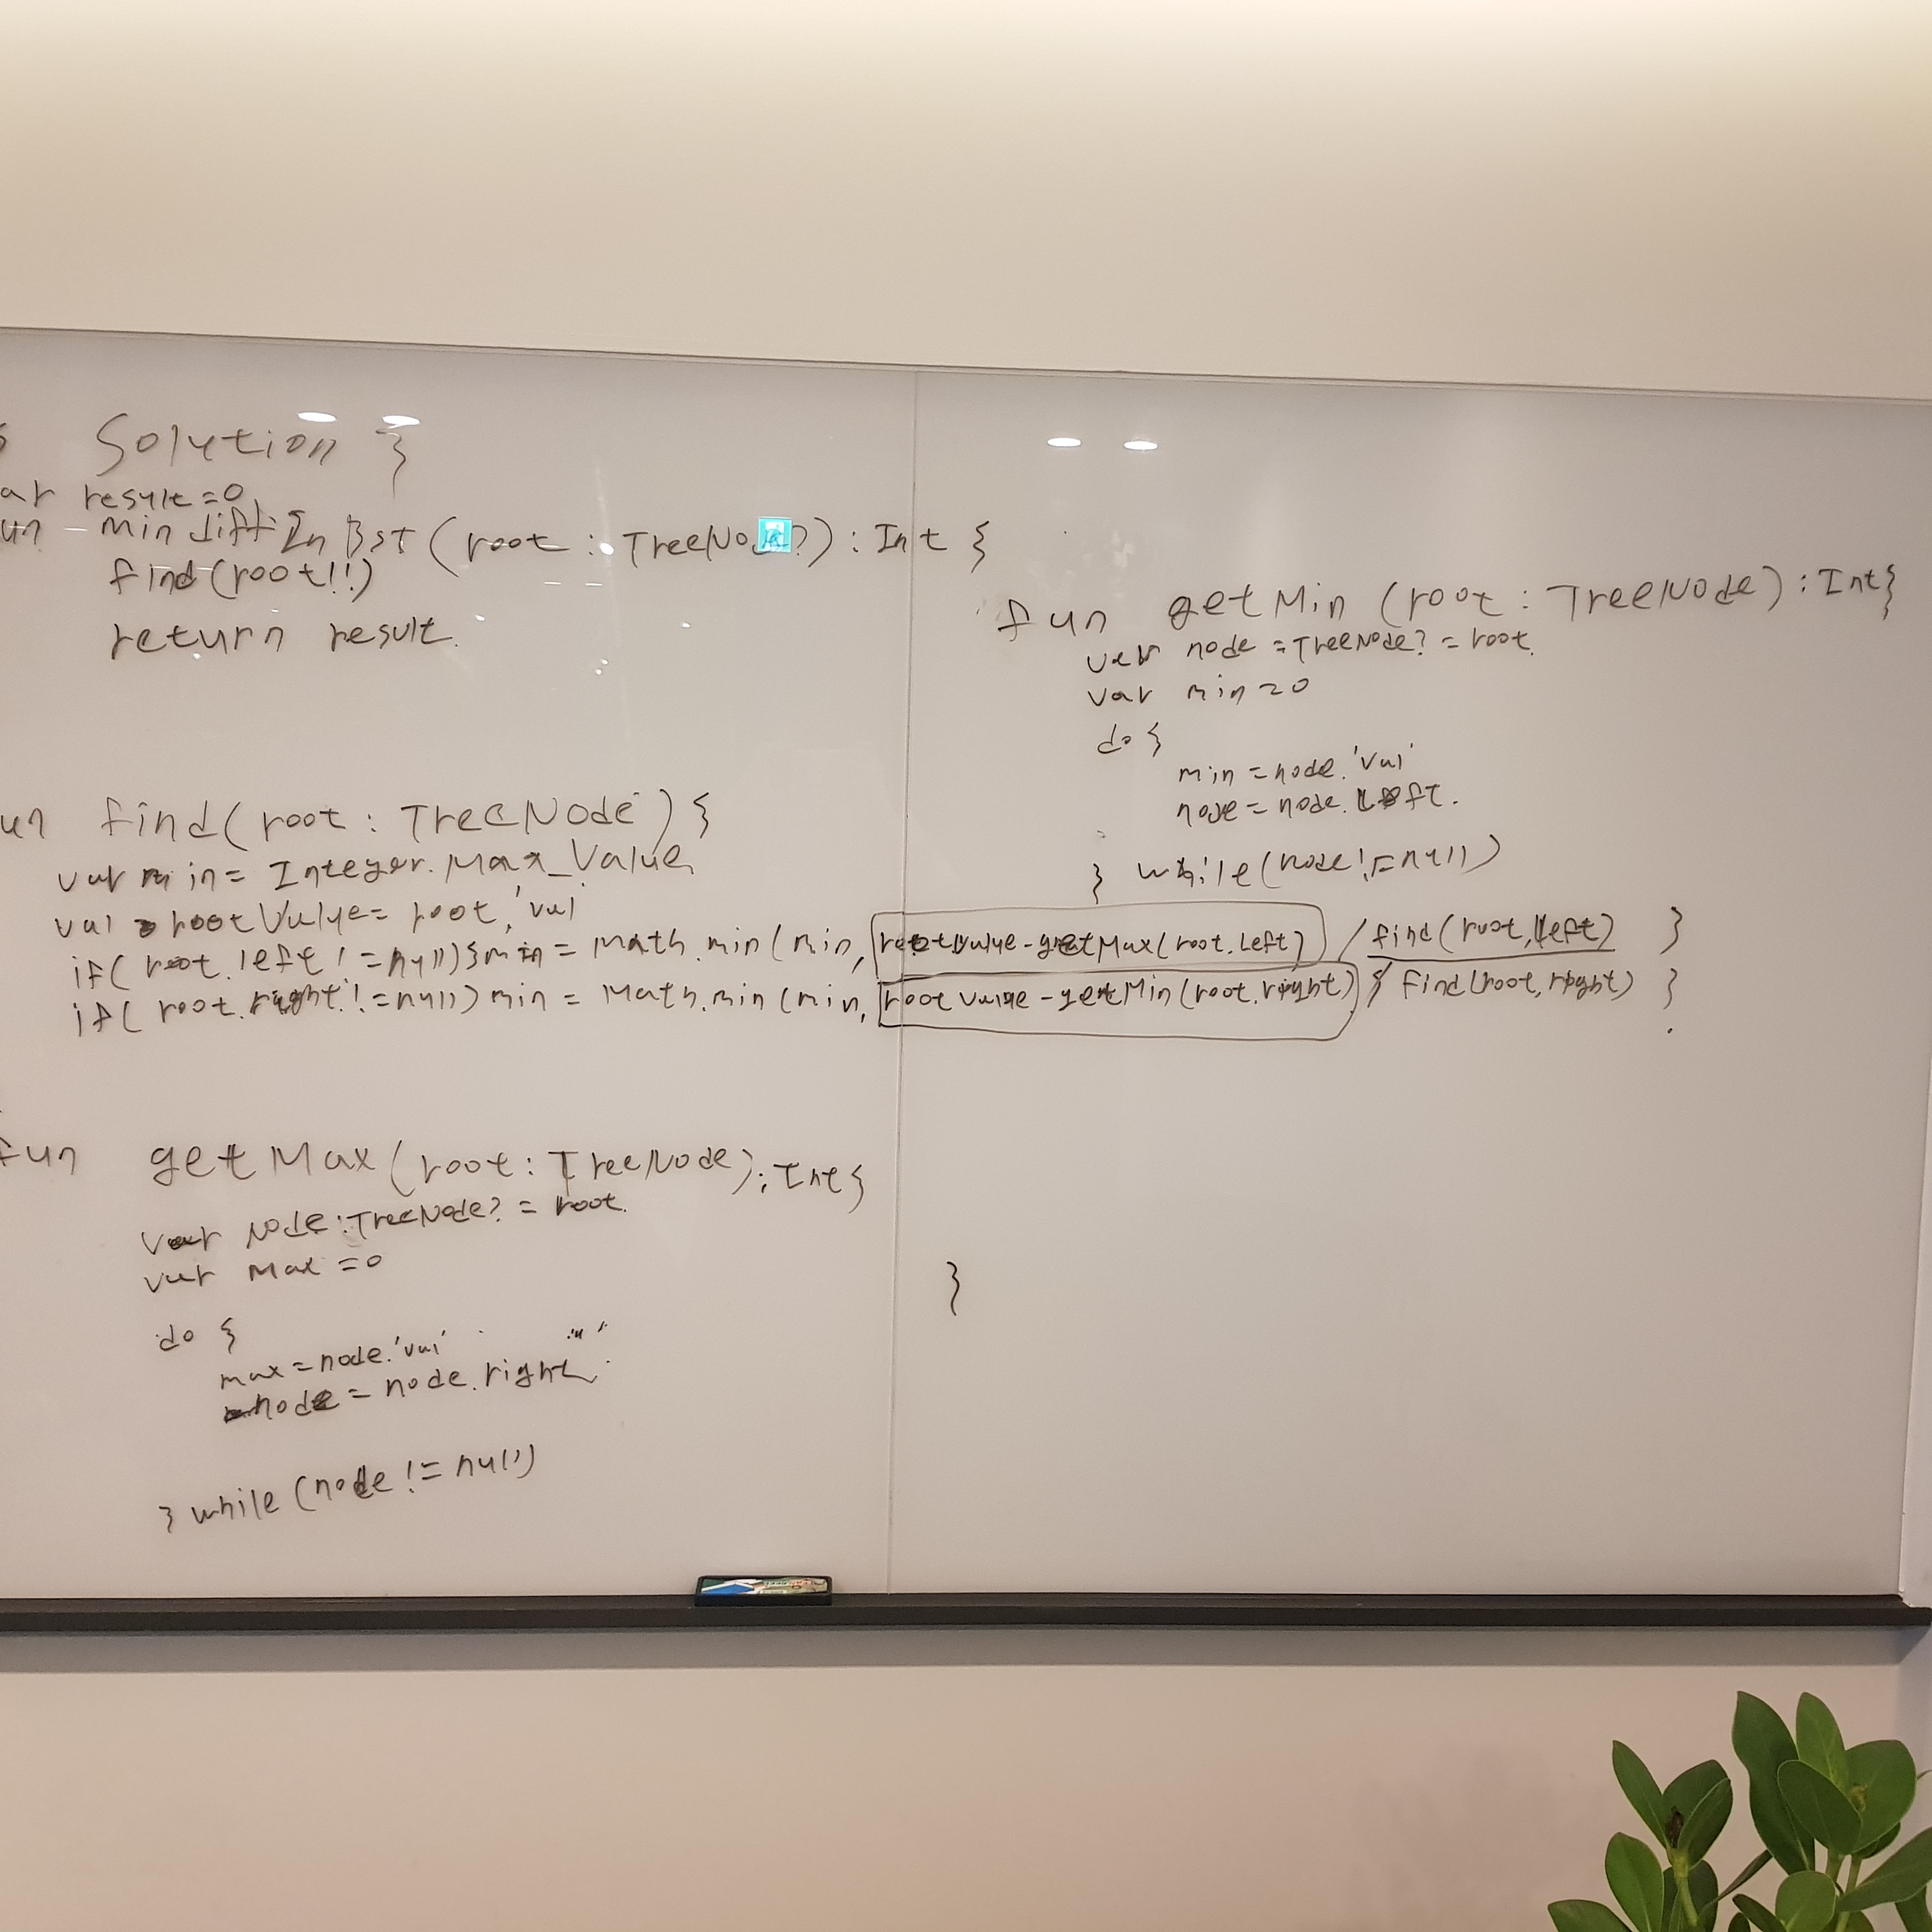 s Solution {
ar result=0
un minDiffInBST(root: TreeNode?): Int {
find(root!!)
return result.
un find(root: TreeNode){
var min= Integer.Max_Value
val rootValue= root.'val
if( root.left != null){min = Math.min(min, rootvalue-getMax(root.left) / find(root,left) }
if( root.right != null) min = Math.min(min, root value-getMin(root.right) { find(root,right) }
fun getMax(root: TreeNode): Int {
var Node:TreeNode? = root.
var Max =0
do {
max=node.'val'
node = node.right
} while (node != null)
fun getMin (root: TreeNode): Int{
var node =TreeNode? = root.
var min=0
do {
min=node.'val'
node= node.left.
} while(node!=null)
}